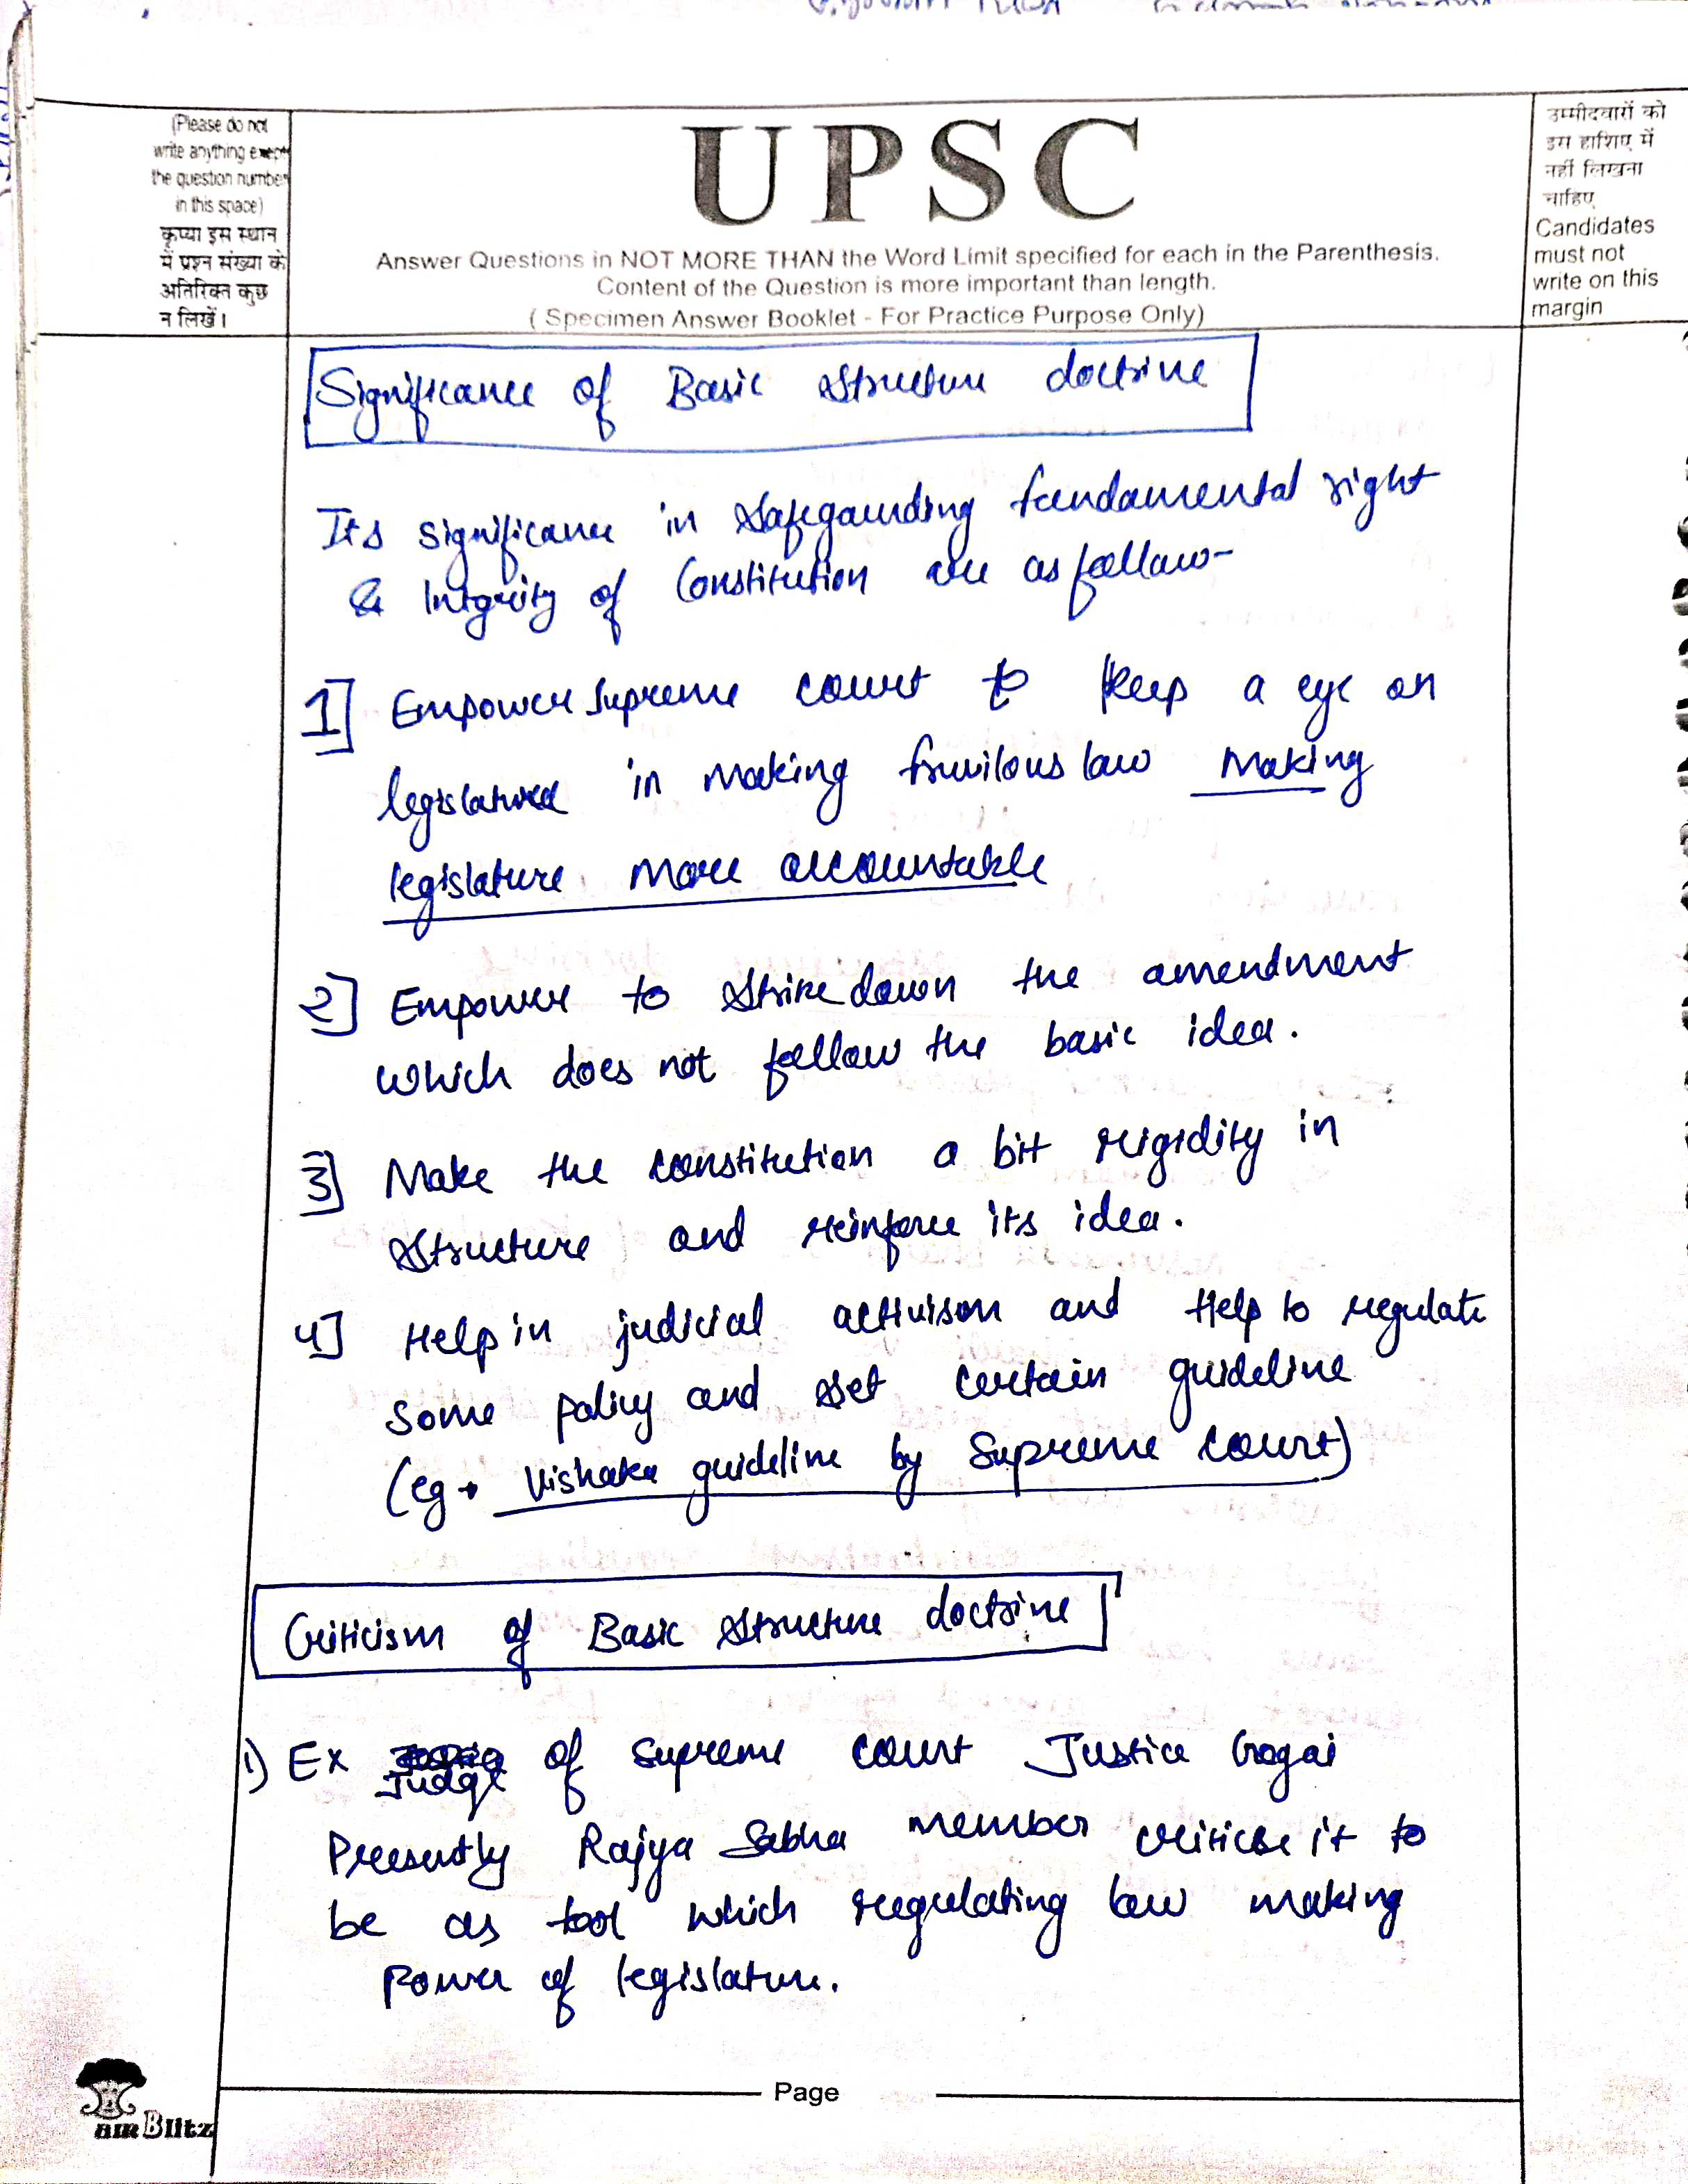 (Please do not
write anything except
the question number
in this space)
कृप्या इस स्थान
में प्रश्न संख्या के
अतिरिक्त कुछ
न लिखें।
UPSC
Answer Questions in NOT MORE THAN the Word Limit specified for each in the Parenthesis.
Content of the Question is more important than length.
( Specimen Answer Booklet - For Practice Purpose Only)
उम्मीदवारों को
इस हाशिए में
नहीं लिखना
चाहिए
Candidates
must not
write on this
margin
Significance of Basic Structure doctrine
Its significance in Safegaurding fundamental right
& Integrity of Constitution are as follow-
1] Empower Supreme court to keep a eye on
legislatured in making fruvilous law Making
legislature more accountable
2] Empower to Strike down the amendment
which does not follow the basic idea.
3] Make the constitution a bit rigidity in
Structure and reinforce its idea.
4] Help in judicial activism and Help to regulate
some policy and set certain guideline
(eg → Vishaka guideline by Supreme Court)
Criticism of Basic Structure doctrine
1) Ex Judge of Supreme Court Justice Gogai
Presently Rajya Sabha member criticse it to
be as tool which regulating law making
power of legislature.
Page
amBlitz